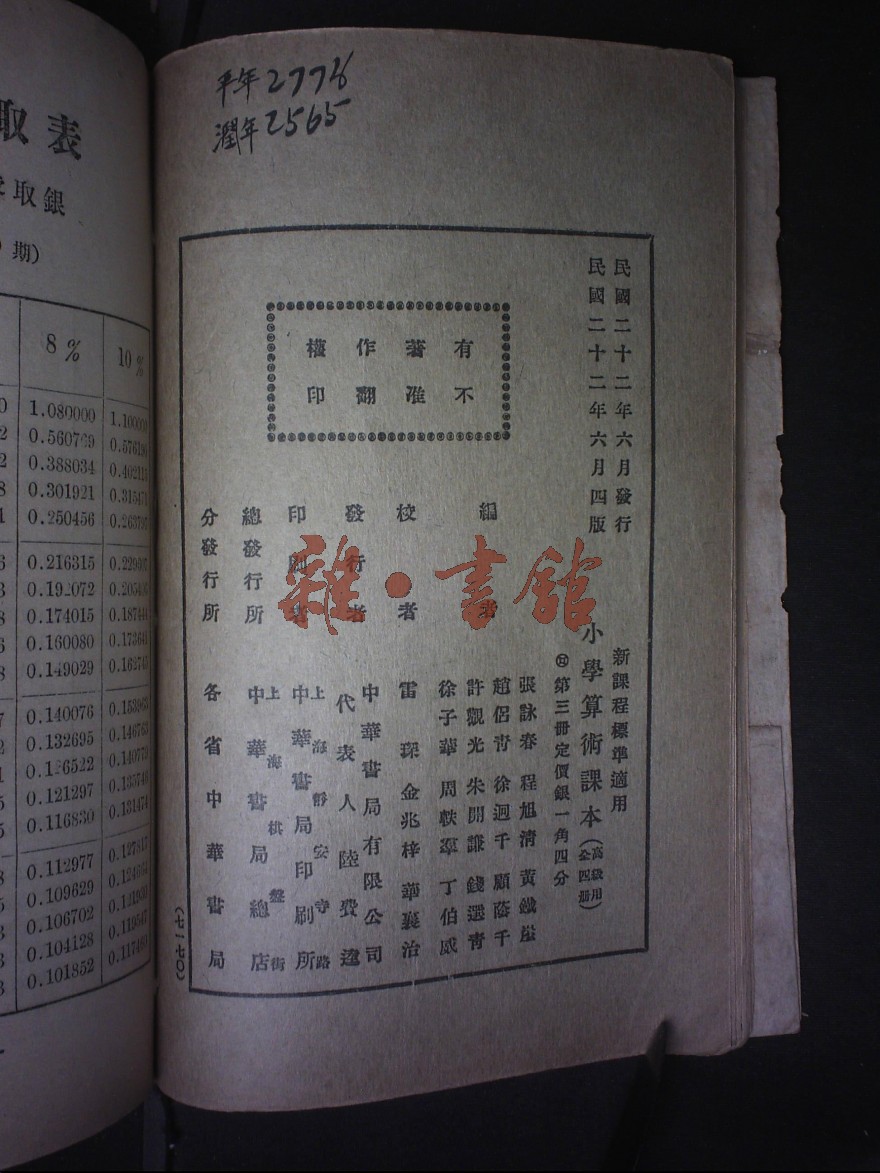 平年2776
潤年2565
民國二十二年六月發行
民國二十二年六月四版
有著作權
不准翻印
新課程標準適用
小學算術課本(高級用 全四冊)
第三冊定價銀一角四分
編者
張詠春 程旭清 黃鐵崖
趙侶青 徐迥千 顧蔭千
許觀光 朱開謙 錢選青
徐子華 周軼羣 丁伯威
校者
雷琛 金兆梓 華襄治
發行者
中華書局有限公司
代表人 陸費逵
印刷者
上海靜安寺路
中華書局印刷所
總發行所
上海棋盤街
中華書局總店
分發行所
各省中華書局
(七一七〇)
雜·書館
取表
取銀
期)
8 % 10 %
1.080000
0.560769
0.388034
0.301921
0.250456
0.216315
0.174015
0.160080
0.149029
0.140076
0.132695
0.121297
0.116830
0.112977
0.109629
0.106702
0.104128
0.101852